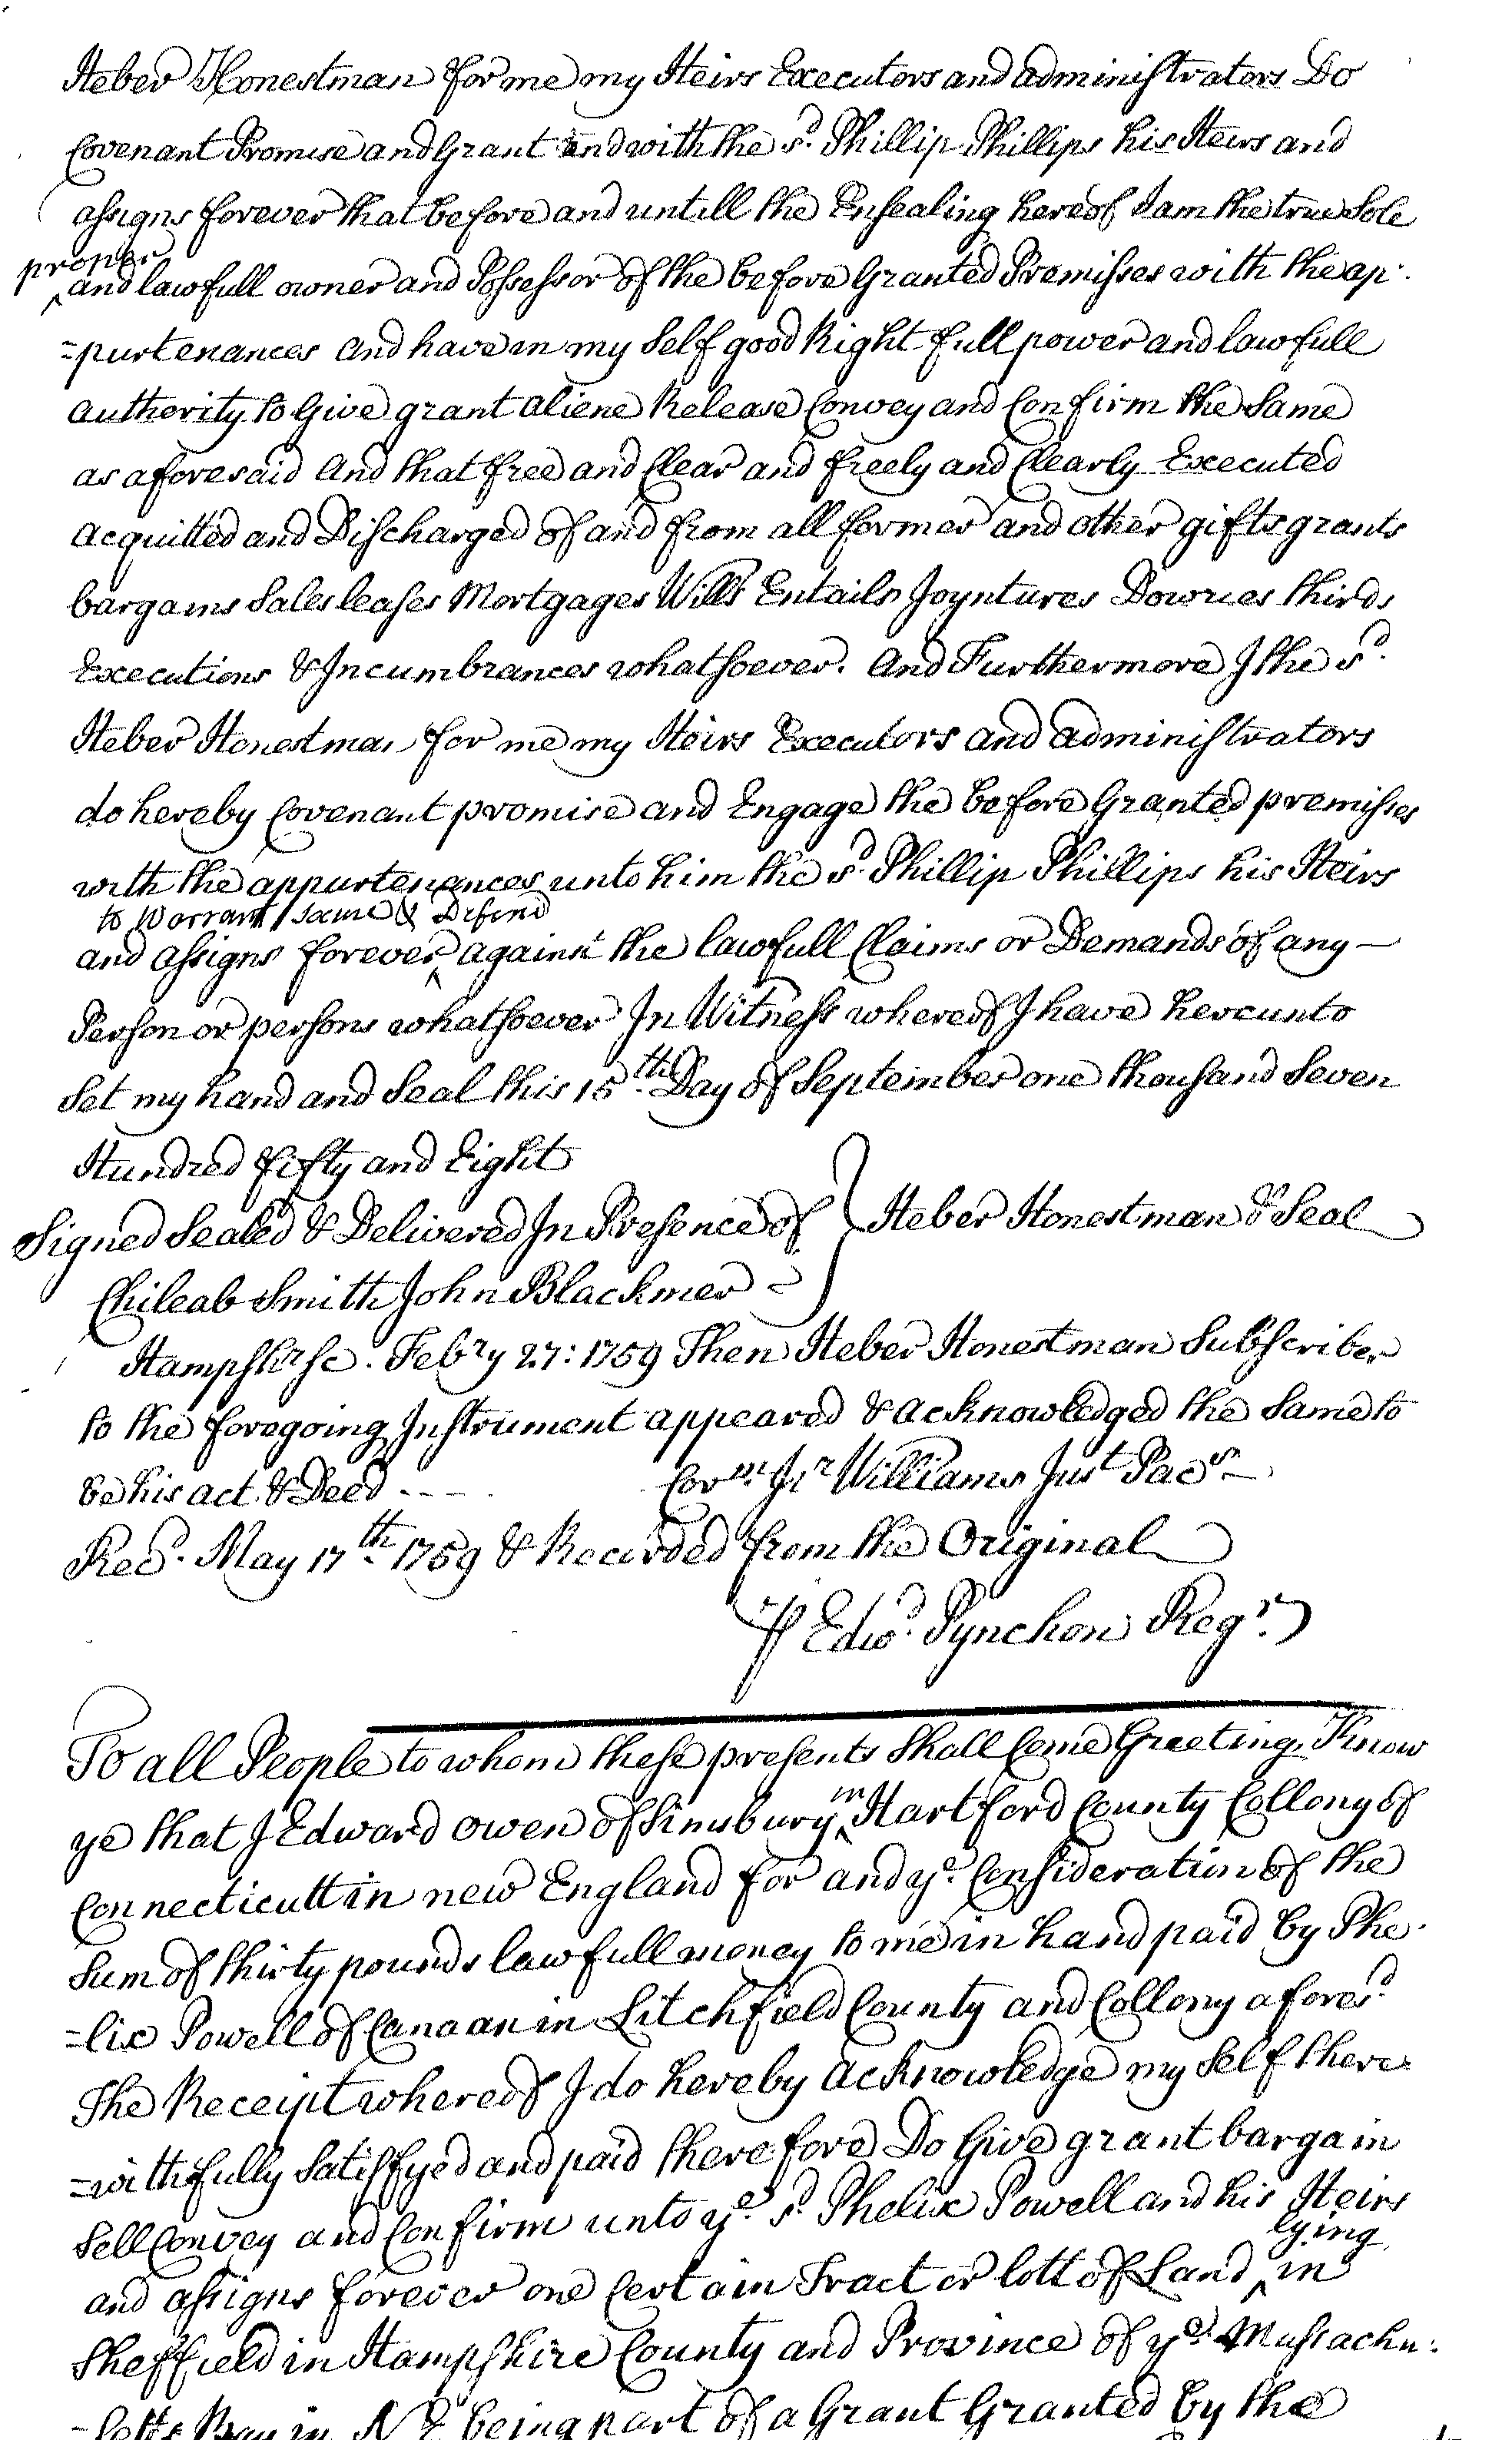 Heber Honestman for me my Heirs Executors and administrators Do
Covenant Promise and Grant and with the sd. Phillip Phillips his Heirs and
assigns forever that before and untill the Ensealing hereof I am the true Sole
proper
and lawfull owner and Possessor of the before Granted Premisses with the ap:
=purtenances and have in my Self good Right full power and lawfull
authority to Give grant aliene Release Convey and Confirm the Same
as aforesaid And that free and Clear and freely and Clearly Executed
acquitted and Discharged of and from all former and other gifts grants
bargains Sales leases Mortgages Wills Entails Joyntures Dowries thirds
Executions & Incumbrances whatsoever. And Furthermore I the sd.
Heber Honestman for me my Heirs Executors and administrators
do hereby Covenant promise and Engage the before Granted premisses
with the appurtenances unto him the sd. Phillip Phillips his Heirs
to Warrant Secure & Defend
and assigns forever against the lawfull Claims or Demands of any —
Person or persons whatsoever In Witness whereof I have hereunto
Set my hand and Seal this 15th. Day of September one thousand Seven
Hundred fifty and Eight
Signed Sealed & Delivered In Presence of } Heber Honestman & Seal
Chileab Smith John Blackmer =
Hampshr. Sc. Febry 27: 1759 Then Heber Honestman Subscriber
to the foregoing Instrument appeared & acknowledged the Same to
be his act & Deed - - - - Corm. Jr Williams Just Pacs. —
Recd. May 17th. 1759 & Recorded from the Original
⅌ Edwd. Pynchon Regr.
To all People to whom these presents Shall Come Greeting, Know
in
ye that I Edward Owen of Simsbury Hartford County Collony of
Connecticutt in new England for and ye. Consideration of the
Sum of thirty pounds lawfull money to me in hand paid by Phe:
=lix Powell of Canaan in Litchfield County and Collony aforesd.
The Receipt whereof I do hereby acknowledge my Self there:
=with fully Satisfyed and paid therefore Do Give grant bargain
Sell Convey and Confirm unto ye. sd. Phelix Powell and his Heirs
lying
and assigns forever one Certain Tract or lott of Land in
Sheffield in Hampshire County and Province of ye. Massachu:
=setts Bay in N E being part of a Grant Granted by the